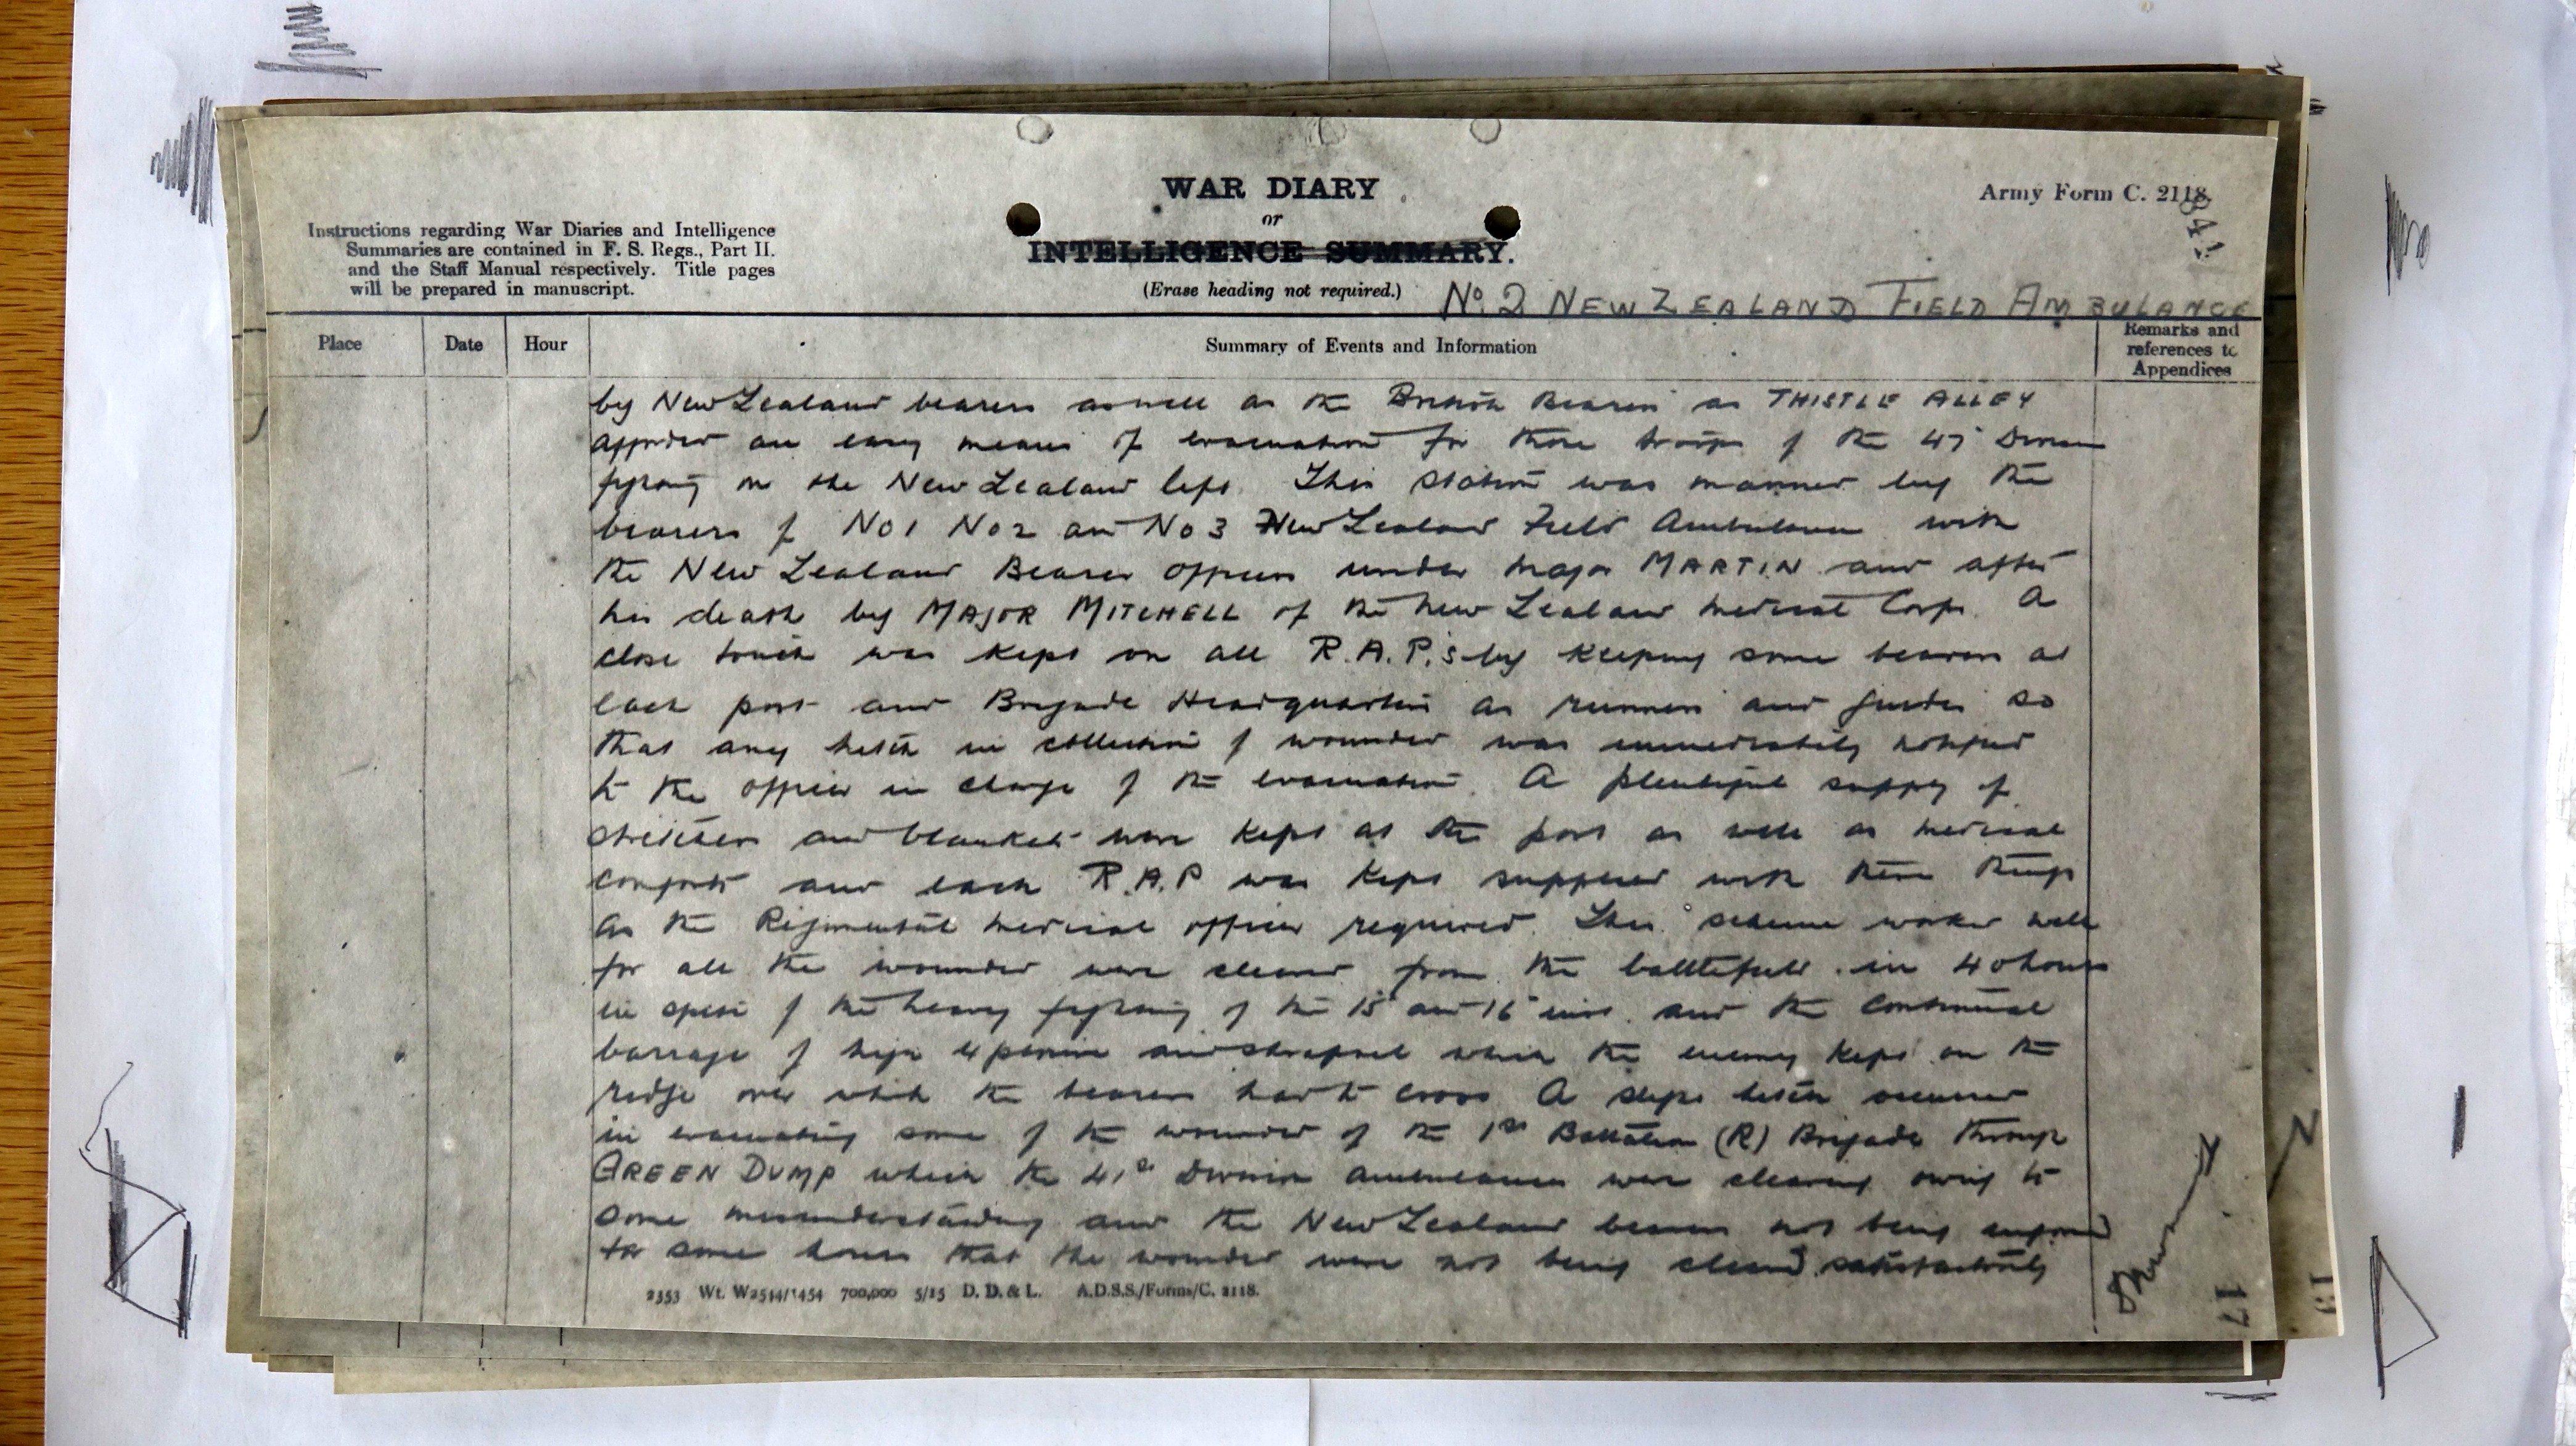 WAR DIARY
or
INTELLIGENCE SUMMARY.
(Erase heading not required.)
Army Form C. 2118.
Instructions regarding War Diaries and Intelligence
Summaries are contained in F. S. Regs., Part II.
and the Staff Manual respectively. Title pages
will be prepared in manuscript.
No. 2 NEW ZEALAND FIELD AMBULANCE
Place
Date
Hour
Summary of Events and Information
Remarks and
references to
Appendices
by New Zealand bearers as well as the British Bearers as THISTLE ALLEY
afforded an easy means of evacuation for those troops of the 47 Division
fighting on the New Zealand left. This station was manned by the
bearers of No 1 No 2 and No 3 New Zealand Field Ambulance with
the New Zealand Bearer Officers under Major MARTIN and after
his death by MAJOR MITCHELL of the New Zealand Medical Corps. A
close touch was kept on all R.A.P.s by keeping some bearers at
each post and Brigade Headquarters as runners and guides so
that any hitch in collection of wounded was immediately notified
to the officer in charge of the evacuation. A plentiful supply of
stretchers and blankets were kept at the post as well as medical
comforts and each R.A.P was kept supplied with these things
as the Regimental Medical officer required. This scheme worked well
for all the wounded were cleared from the battlefield in 40 hours
in spite of the heavy fighting of the 15 and 16 inst. and the continual
barrage of high explosive and shrapnel which the enemy kept on the
ridge over which the bearers had to cross. A slight hitch occurred
in evacuating some of the wounded of the 1st Battalion (R) Brigade through
GREEN DUMP which the 41st Division ambulances were clearing owing to
some misunderstanding and the New Zealand bearers not being informed
for some hours that the wounded were not being cleared satisfactorily
2353 Wt. W2544/1454 700,000 5/15 D. D. & L. A.D.S.S./Forms/C. 2118.
17